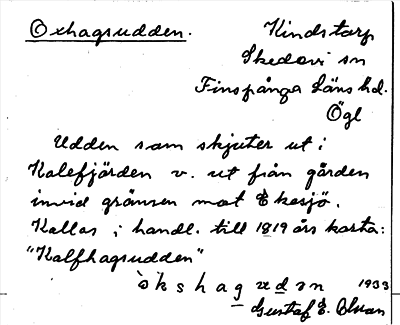 Oxhagsudden.
Kindstorp
Skedevi sn
Finspånga Läns hd.
Ögl
Udden som skjuter ut i
Kalvfjärden v. ut från gården
invid gränsen mot Ekesjö.
Kallas i handl. till 1819 års karta:
"Kalfhagsudden"
ò̀kshagud∂n 1933
Gustaf E. Olsson